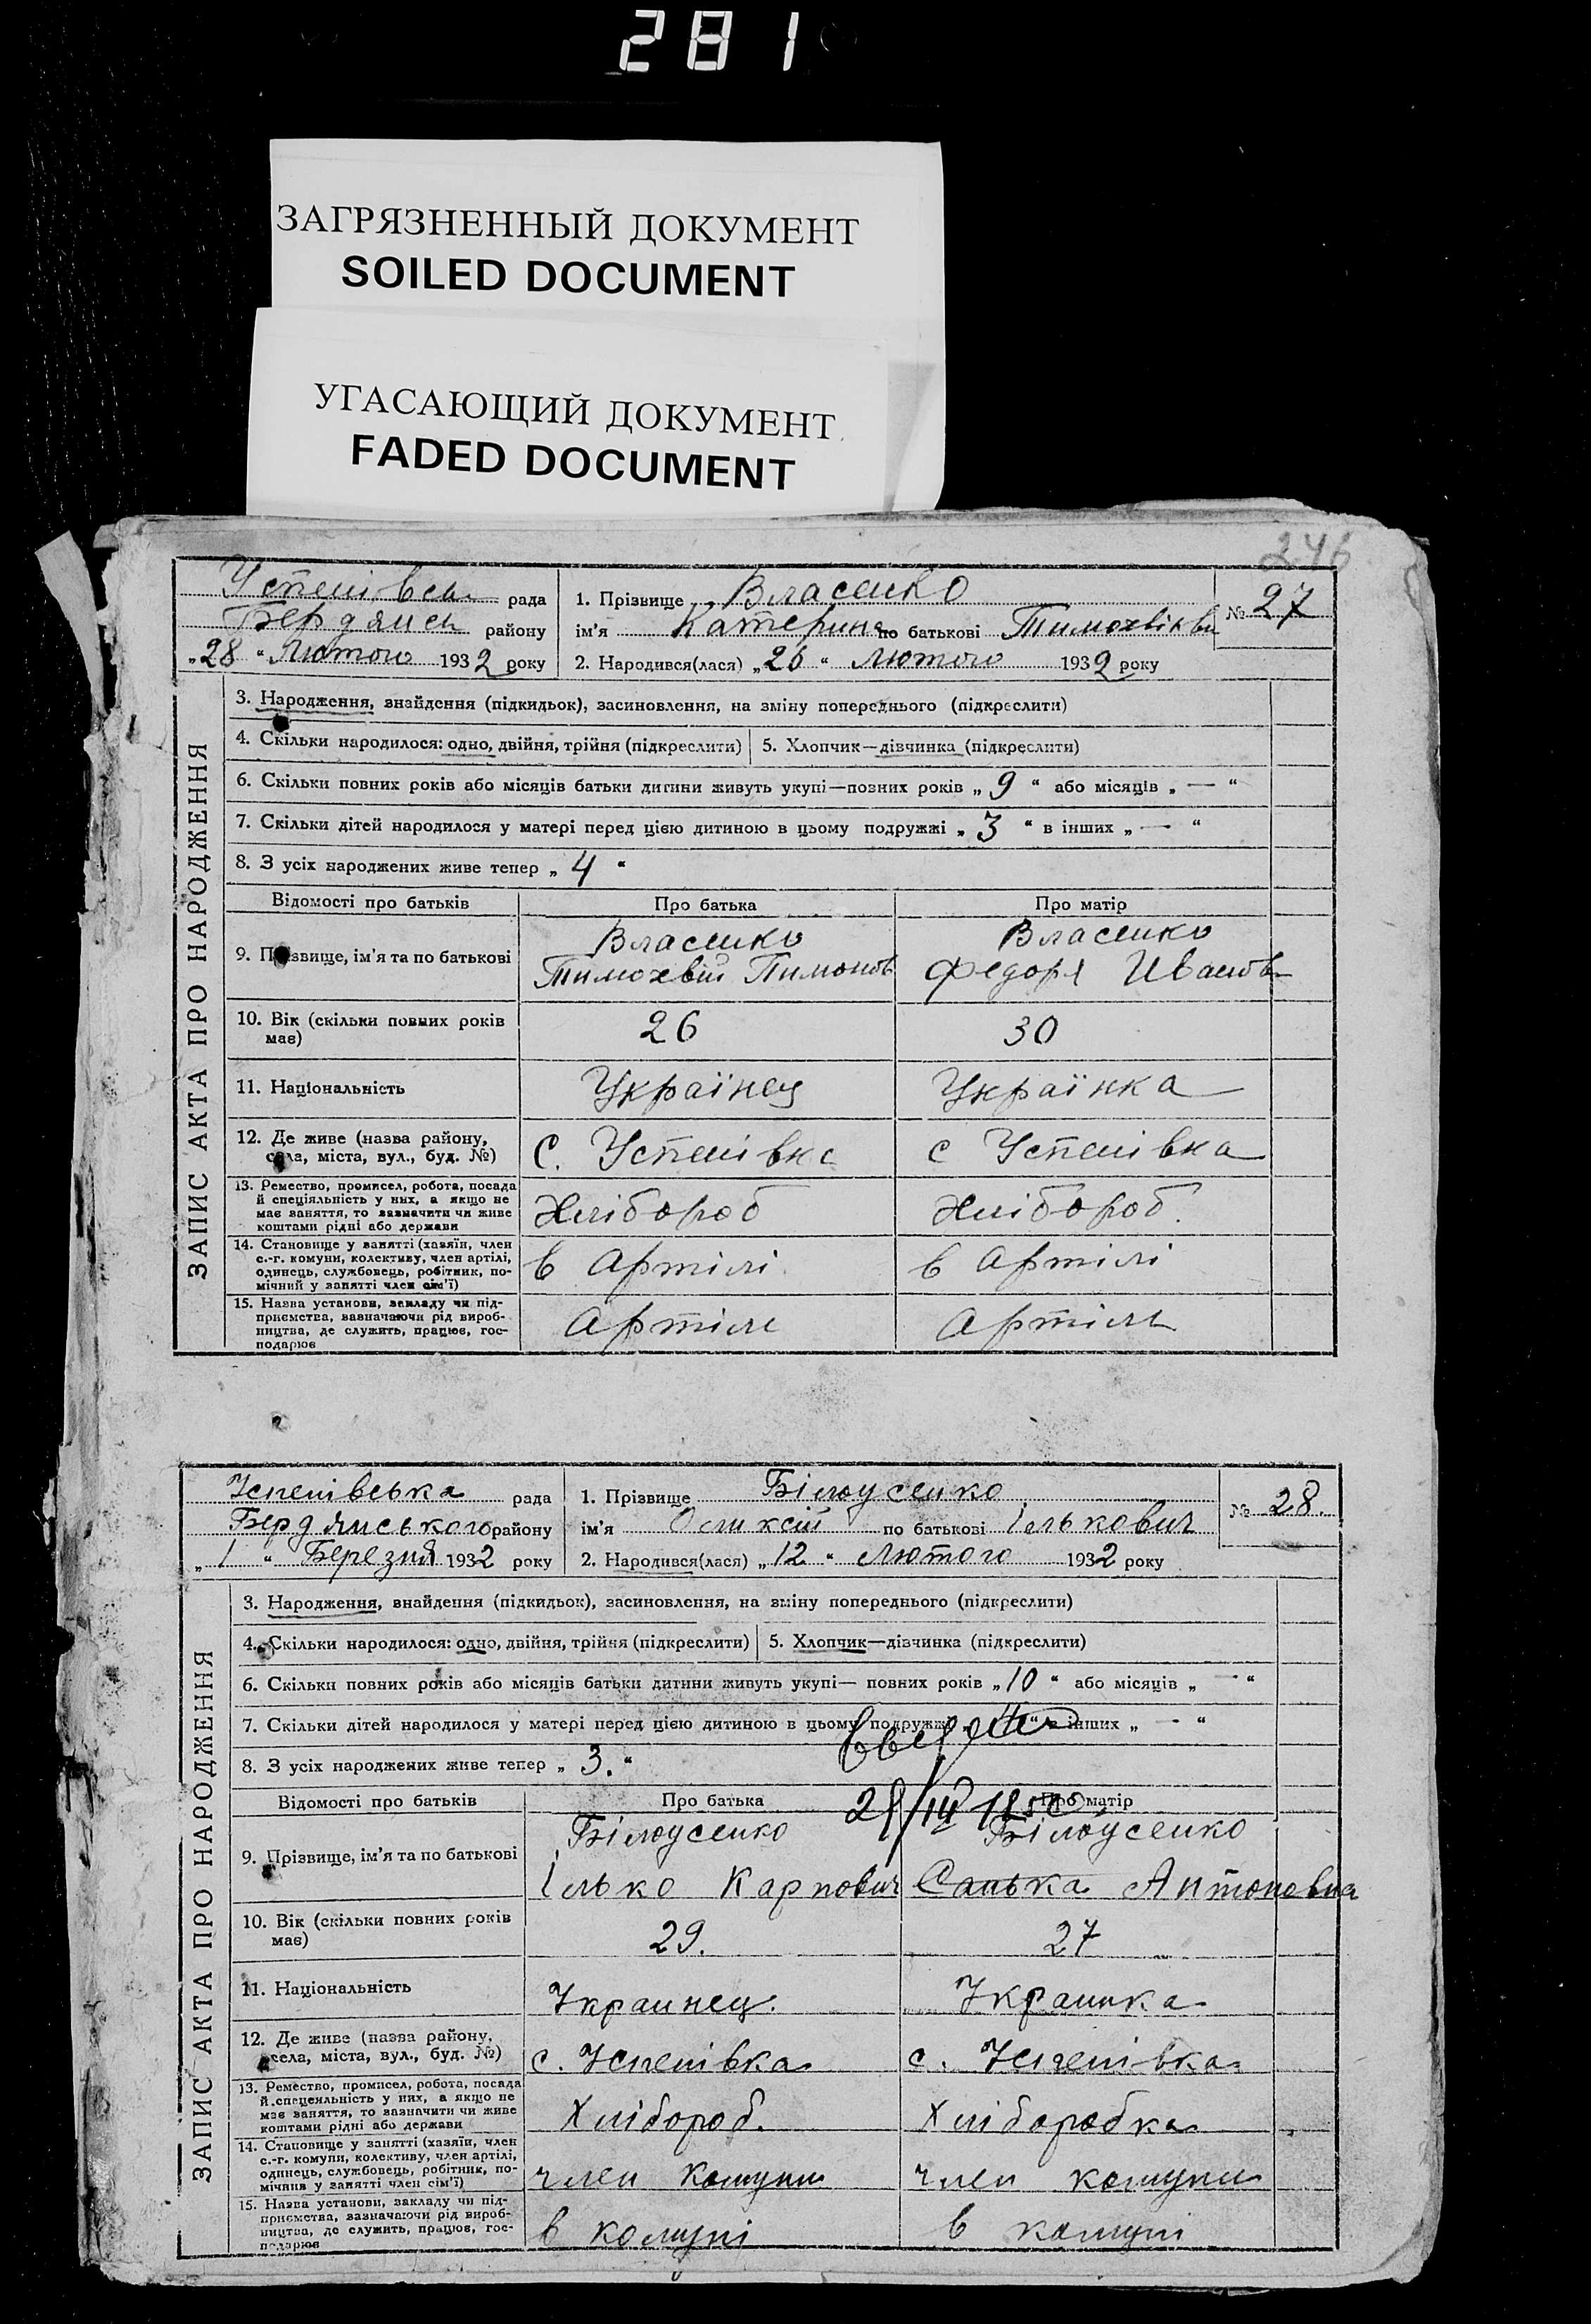 281
ЗАГРЯЗНЕННЫЙ ДОКУМЕНТ
SOILED DOCUMENT
УГАСАЮЩИЙ ДОКУМЕНТ
FADED DOCUMENT
246
ЗАПИС АКТА ПРО НАРОДЖЕННЯ
Успенівськ рада
Бердянськ району
„28“ Лютого 1932 року
1. Прізвище Власенко
ім'я Катерина по батькові Тимохвієвн
2. Народився(лася) „26“ Лютого 1932 року
№ 27
3. Народження, знайдення (підкидьок), засиновлення, на зміну попереднього (підкреслити)
4. Скільки народилося: одно, двійня, трійня (підкреслити) 5. Хлопчик—дівчинка (підкреслити)
6. Скільки повних років або місяців батьки дитини живуть укупі—повних років „9“ або місяців „—“
7. Скільки дітей народилося у матері перед цією дитиною в цьому подружжі „3“ в інших „—“
8. З усіх народжених живе тепер „4“
Відомості про батьків Про батька Про матір
9. Прізвище, ім'я та по батькові Власенко Власенко
Тимохвій Пимонов Федора Иванов
10. Вік (скільки повних років має) 26 30
11. Національність Українец Українка
12. Де живе (назва району, села, міста, вул., буд. №) С. Успенівка с Успенівка
13. Ремество, промисел, робота, посада й спеціяльність у них, а якщо не має заняття, то зазначити чи живе коштами рідні або держави Хлібороб Хлібороб
14. Становище у занятті (хазяїн, член с.-г. комуни, колективу, член артілі, одинець, службовець, робітник, помічний у занятті член сім'ї) в Артілі в Артілі
15. Назва установи, закладу чи підприємства, зазначаючи рід виробництва, де служить, працює, господарює Артіль Артіль
ЗАПИС АКТА ПРО НАРОДЖЕННЯ
Успенівська рада
Бердянського району
„1“ Березня 1932 року
1. Прізвище Білоусенко
ім'я Оликсій по батькові Ількович
2. Народився(лася) „12“ Лютого 1932 року
№ 28.
3. Народження, знайдення (підкидьок), засиновлення, на зміну попереднього (підкреслити)
4. Скільки народилося: одно, двійня, трійня (підкреслити) 5. Хлопчик—дівчинка (підкреслити)
6. Скільки повних років або місяців батьки дитини живуть укупі— повних років „10“ або місяців „—“
7. Скільки дітей народилося у матері перед цією дитиною в цьому подружжі в інших „—“
8. З усіх народжених живе тепер „3.“
Відомості про батьків Про батька Про матір
9. Прізвище, ім'я та по батькові Білоусенко Білоусенко
Ілько Карпович Санька Антоновна
10. Вік (скільки повних років має) 29. 27
11. Національність Украинец. Украинка
12. Де живе (назва району, села, міста, вул., буд. №) с. Успенівка с. Успенівка
13. Ремество, промисел, робота, посада й спецеяльність у них, а якщо не має заняття, то зазначити чи живе коштами рідні або держави Хлібороб. Хлібробка
14. Становище у занятті (хазяїн, член с.-г. комуни, колективу, член артілі, одинець, службовець, робітник, помічник у занятті член сім'ї) член комуни член комуни
15. Назва установи, закладу чи підприємства, зазначаючи рід виробництва, де служить, працює, господарює в комуні в комуні